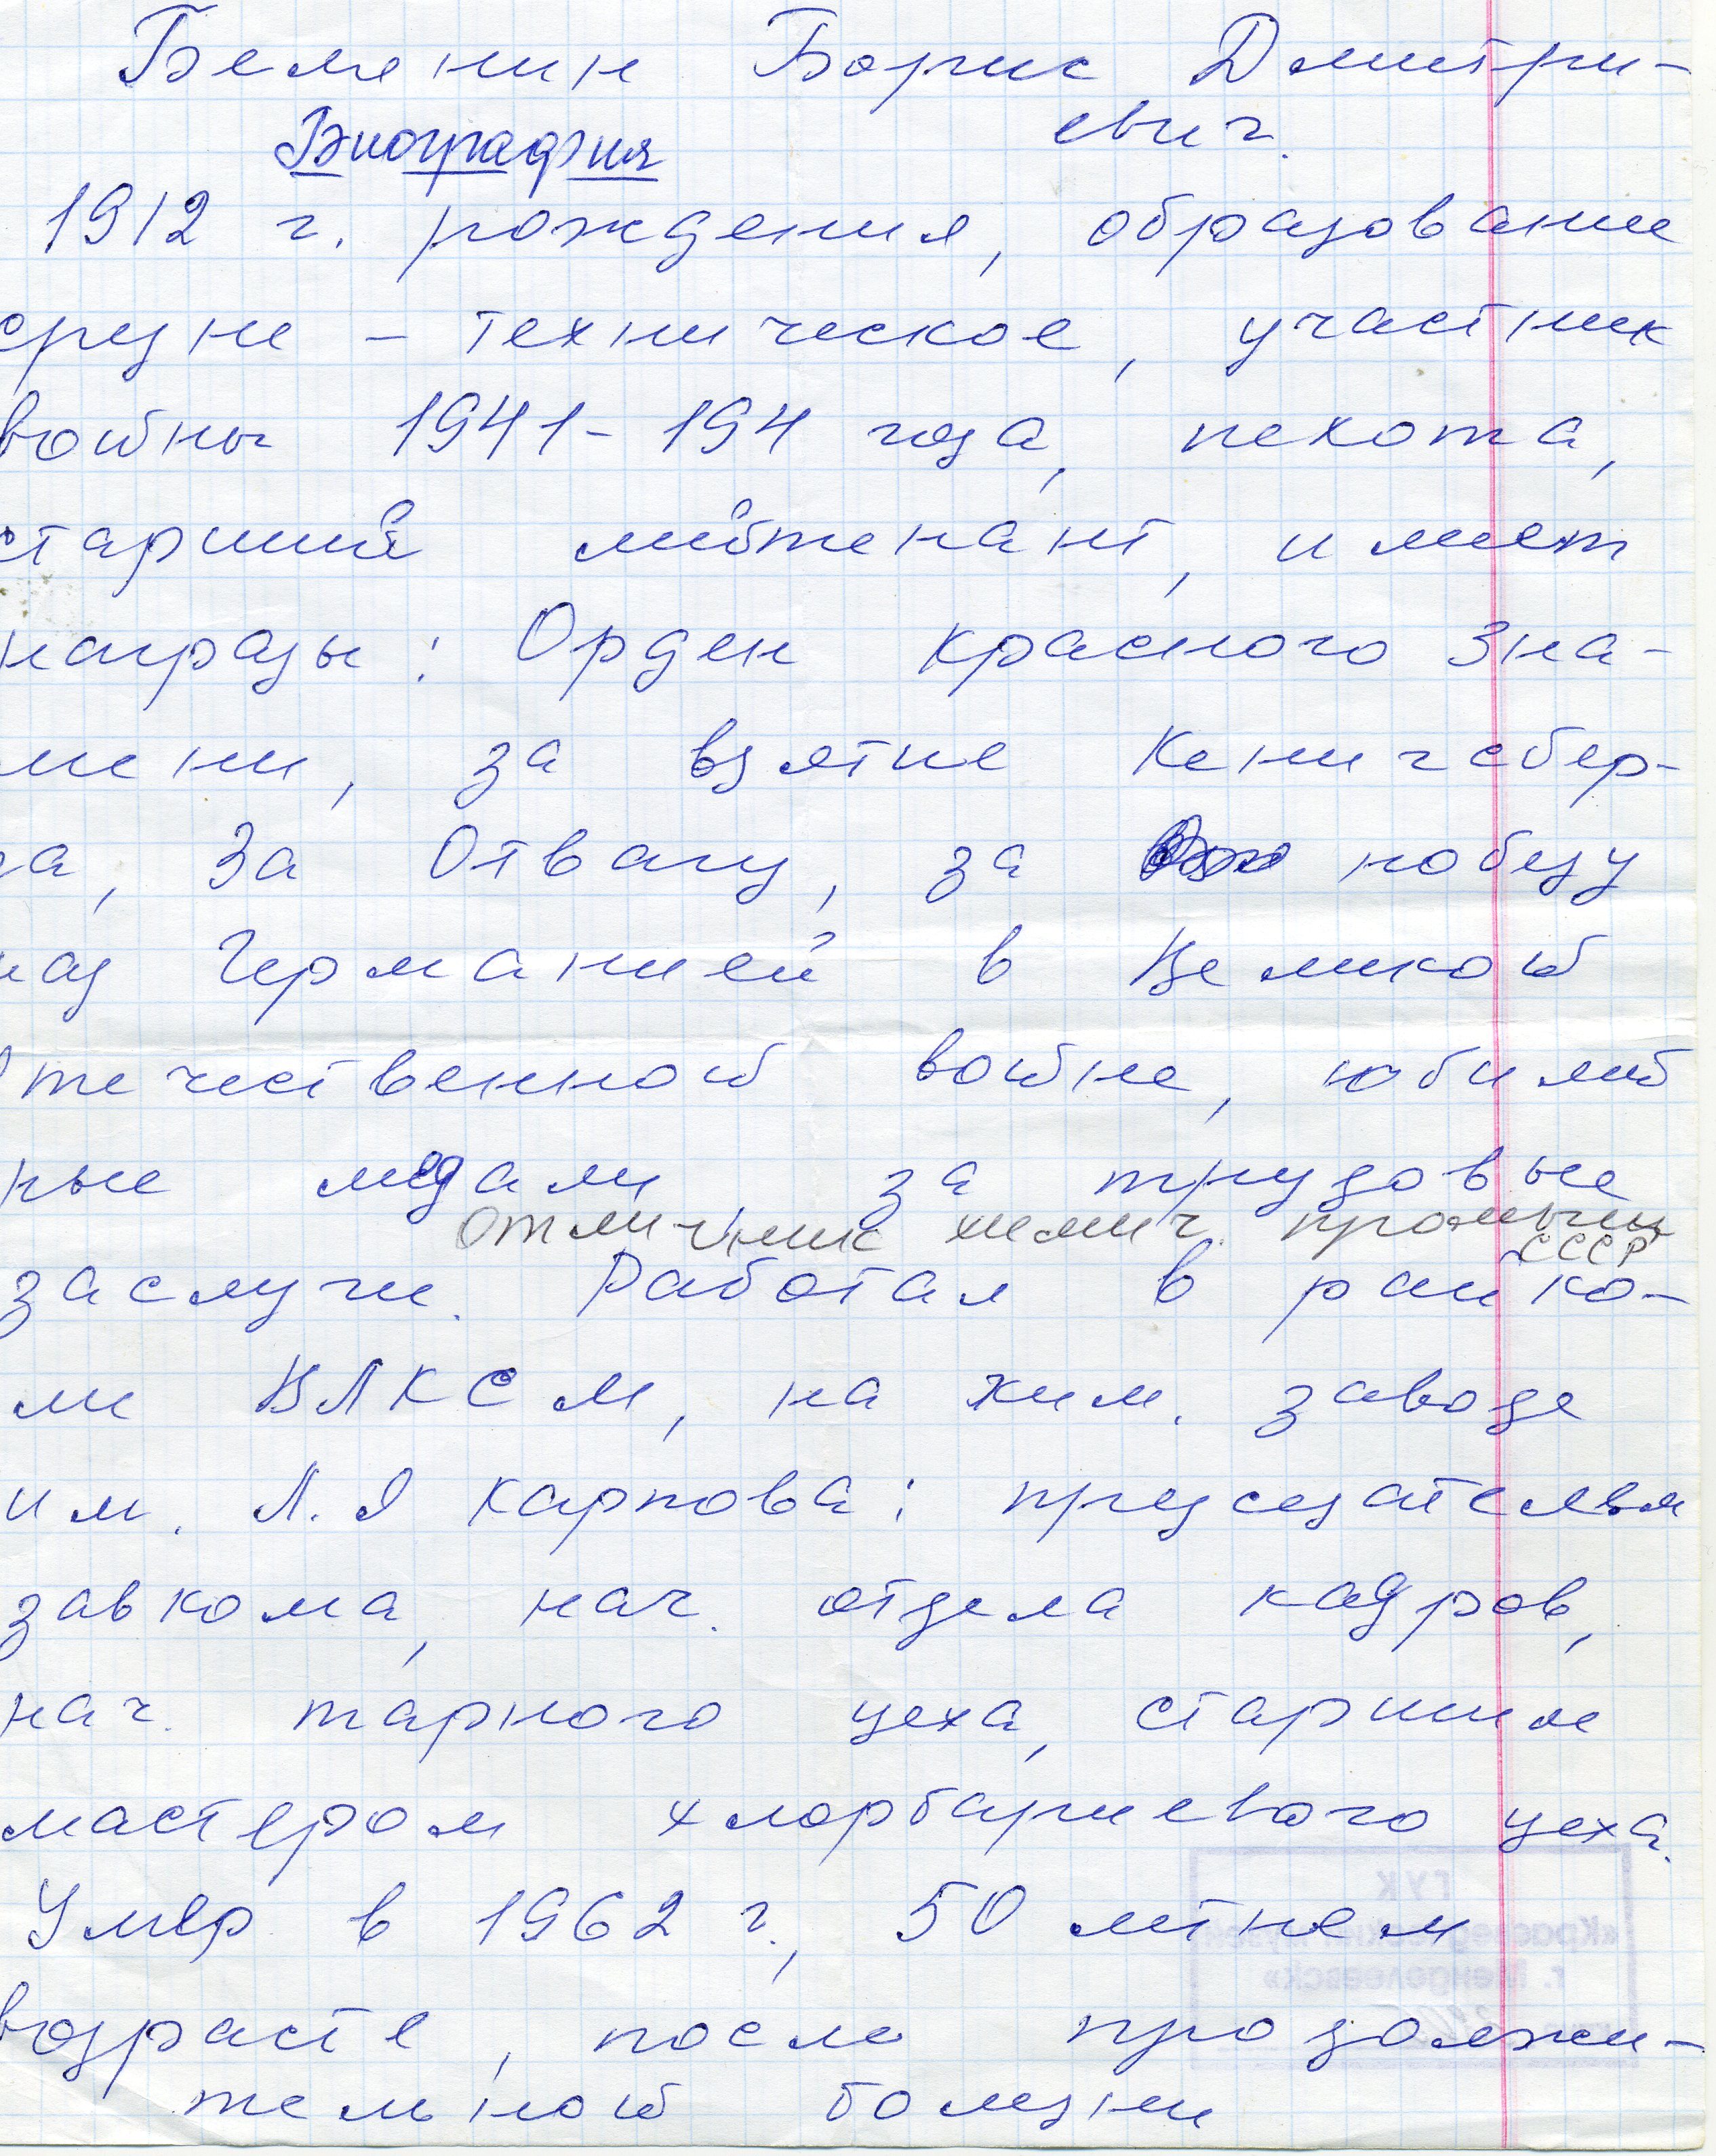 Белянин Борис Дмитри-
евич.
Биография
1912 г. рождения, образование
средне - техническое, участник
войны 1941-194 года, пехота,
старший лейтенант, имеет
награды: Орден красного Зна-
мени, за взятие Кенигсбер-
га, За Отвагу, за победу
над Германией в Великой
Отечественной войне, юбилей
ные медали, за трудовые
Отличник химич. промышл
СССР
заслуги. Работал в райко-
ме ВЛКСМ, на хим. заводе
им. Л.Я Карпова: председателем
завкома, нач. отдела кадров,
нач. тарного цеха, старшим
мастером хлорбариевого цеха.
Умер в 1962 г., 50 летнем
возрасте, после продолжи-
тельной болезни
ГУК
«Краеведческий музей
г. Менделеевск»